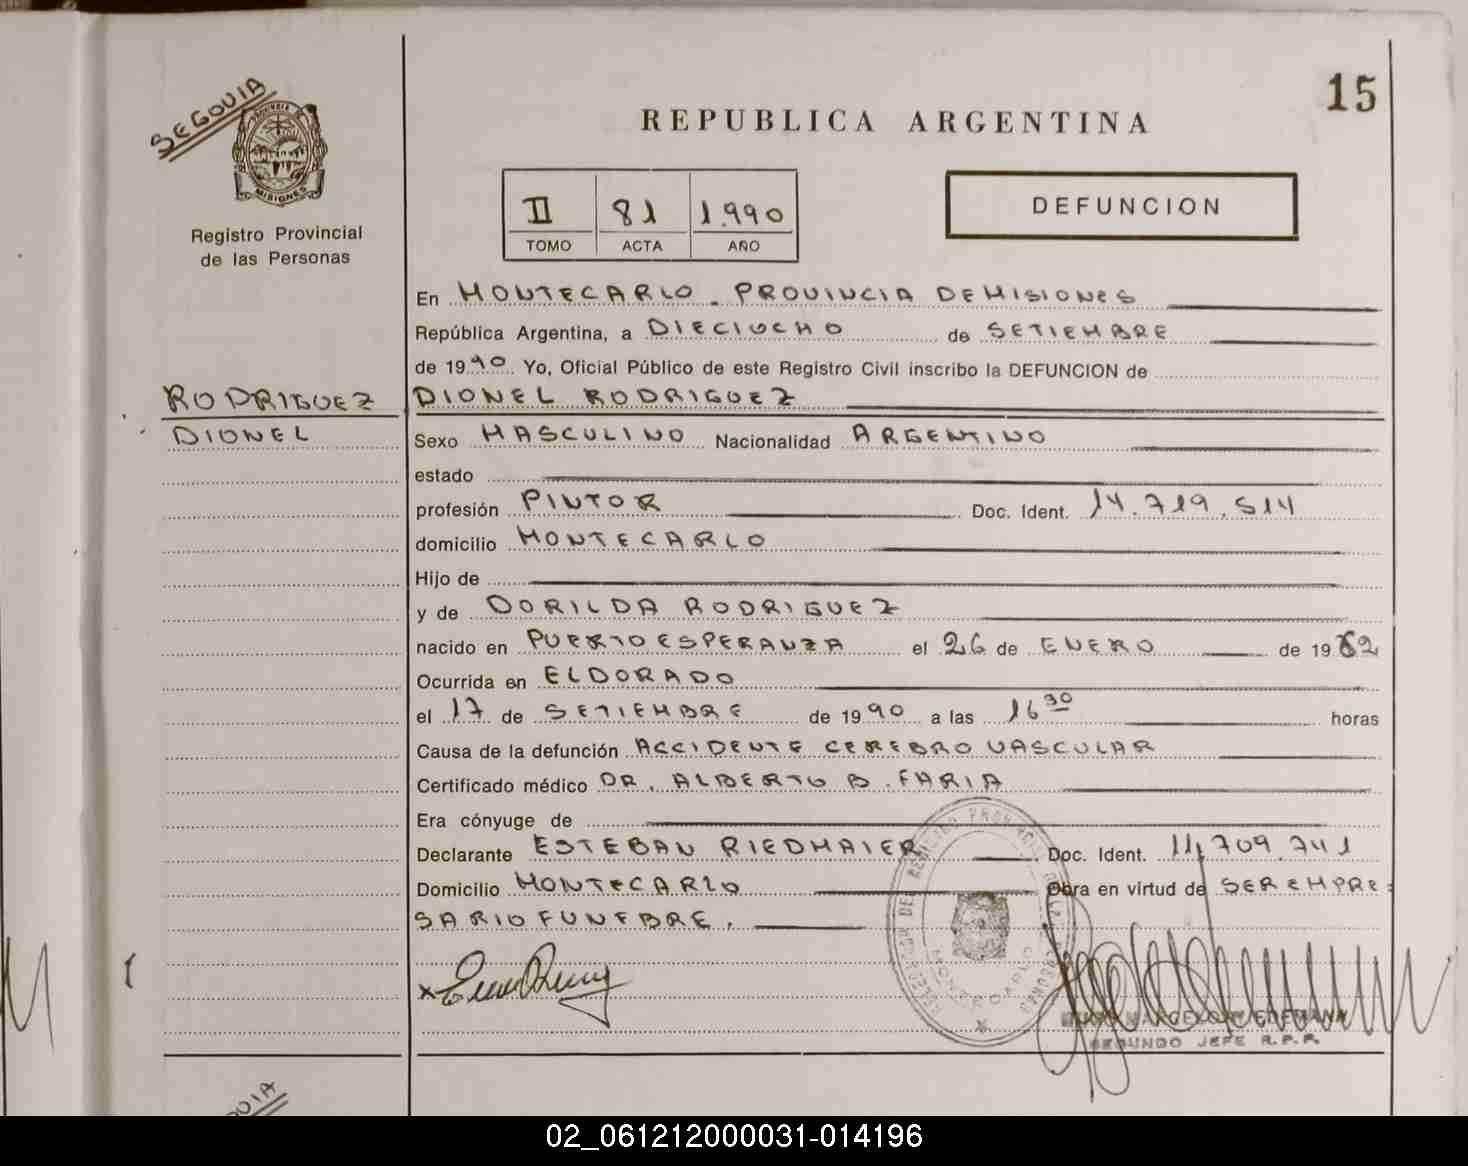 15
SEGOVIA
MISIONES
Registro Provincial
de las Personas
REPUBLICA ARGENTINA
II 81 1.990
TOMO ACTA AÑO
DEFUNCION
En MONTECARLO - PROVINCIA DE MISIONES
República Argentina, a DIECIOCHO de SETIEMBRE
de 1990 Yo, Oficial Público de este Registro Civil inscribo la DEFUNCION de
RODRIGUEZ
DIONEL
DIONEL RODRIGUEZ
Sexo MASCULINO Nacionalidad ARGENTINO
estado
profesión PINTOR Doc. Ident. 14.719.514
domicilio MONTECARLO
Hijo de
y de DORILDA RODRIGUEZ
nacido en PUERTO ESPERANZA el 26 de ENERO de 1962
Ocurrida en ELDORADO
el 17 de SETIEMBRE de 1990 a las 16 30 horas
Causa de la defunción ACCIDENTE CEREBRO VASCULAR
Certificado médico DR. ALBERTO B. FARIA
Era cónyuge de
Declarante ESTEBAN RIEDMAIER Doc. Ident. 11.709.741
Domicilio MONTECARLO Obra en virtud de SER EMPRE=
SARIO FUNEBRE.
MONTECARLO
SEGUNDO JEFE R.P.P.
02_061212000031-014196